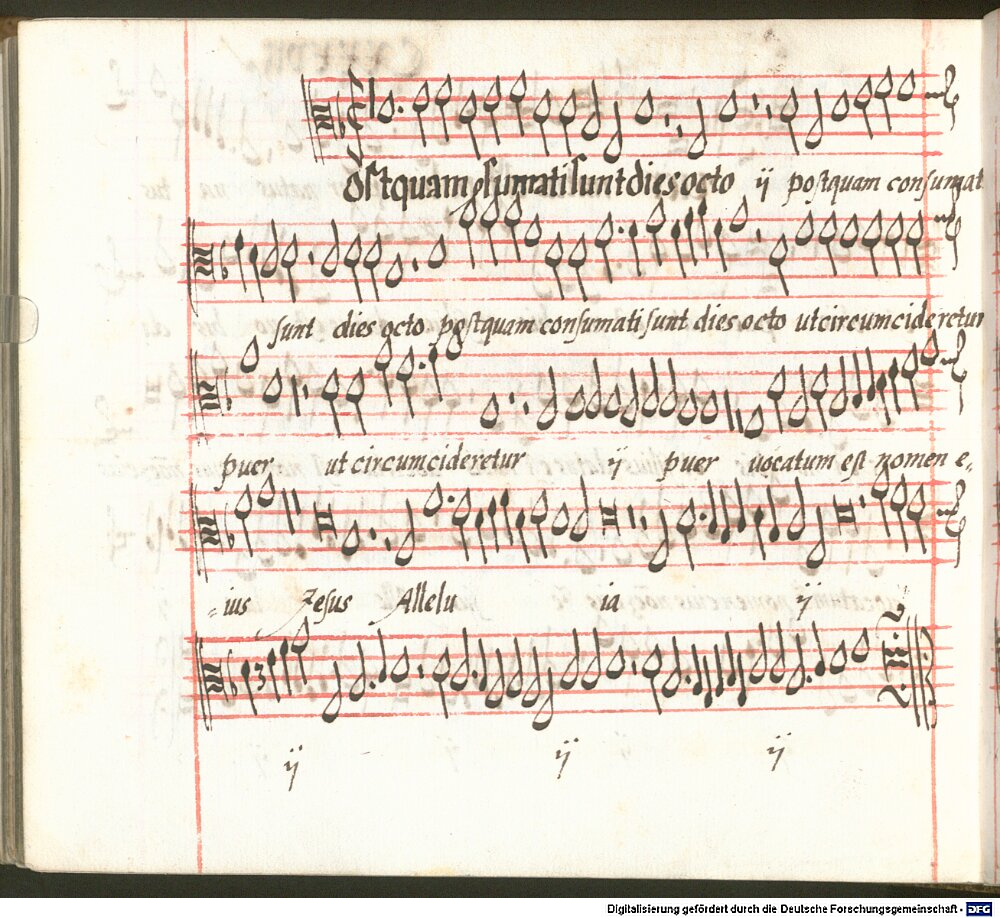 Ostquam ꝯsumati sunt dies octo ij postquam consumat
sunt dies octo postquam consumati sunt dies octo ut circumcideretur
puer ut circumcideretur ij puer uocatum est nomen e-
-ius Jesus Allelu ia ij
3
ij ij ij
Digitalisierung gefördert durch die Deutsche Forschungsgemeinschaft - DFG